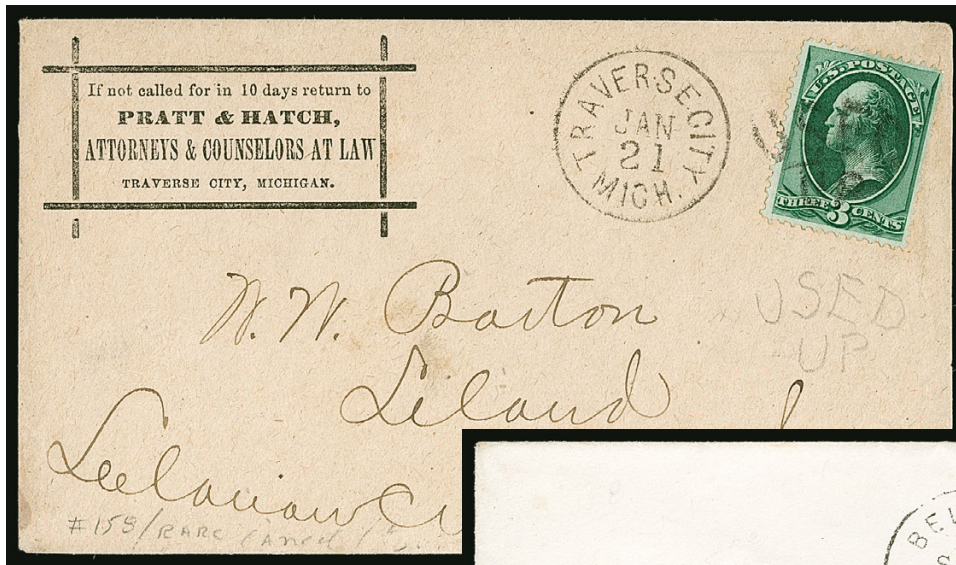 If not called for in 10 days return to
PRATT & HATCH,
ATTORNEYS & COUNSELORS AT LAW
TRAVERSE CITY, MICHIGAN.
TRAVERSE CITY
JAN
21
MICH.
U.S. POSTAGE
THREE 3 CENTS
USED
UP
W. W. Barton
Leland
Leelanaw
#158/RARE
BEL